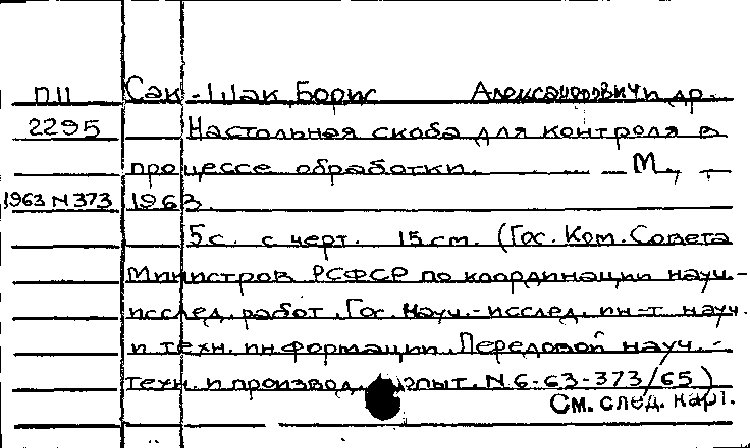 П11 Сак-Шак, Борис Александрович и др.
2295 Настольная скоба для контроля в
процессе обработки. М.,
1963 N 373 1963.
5 с. с черт. 15 см. (Гос. Ком. Совета
Министров РСФСР по координации науч.-
исслед. работ. Гос. науч.-исслед. ин-т науч.
и техн. информации. Передовой науч.-
техн. и производ. опыт. N 6-63-373/65)
См. след. карт.